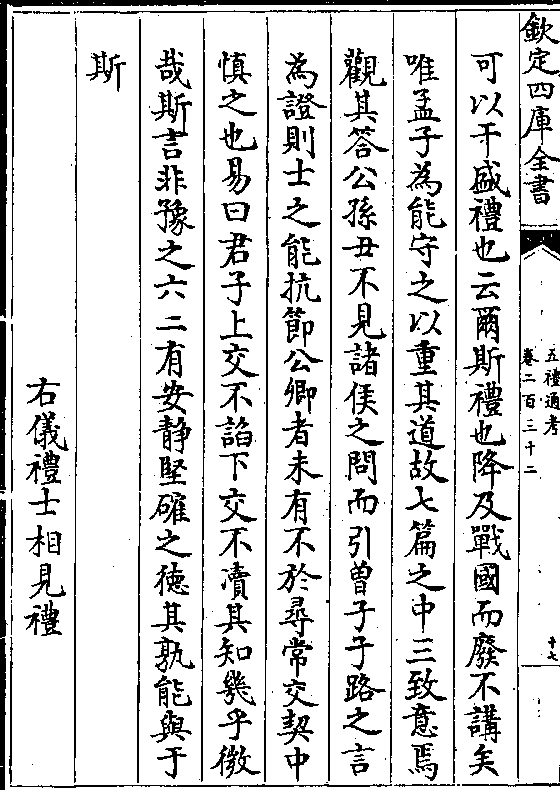 欽定四庫全書
五禮通考
卷二百三十二
十七
可以干盛禮也云爾斯禮也降及戰國而廢不講矣
唯孟子為能守之以重其道故七篇之中三致意焉
觀其答公孫丑不見諸侯之問而引曾子子路之言
為證則士之能抗節公卿者未有不於尋常交契中
慎之也易曰君子上交不諂下交不凟其知幾乎微
哉斯言非豫之六二有安靜堅確之徳其孰能與于
斯
右儀禮士相見禮